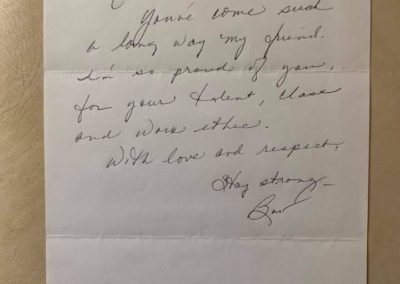 You've come such
a long way my friend.
I'm so proud of you,
for your talent, class
and work ethic.
With love and respect,
Stay strong –